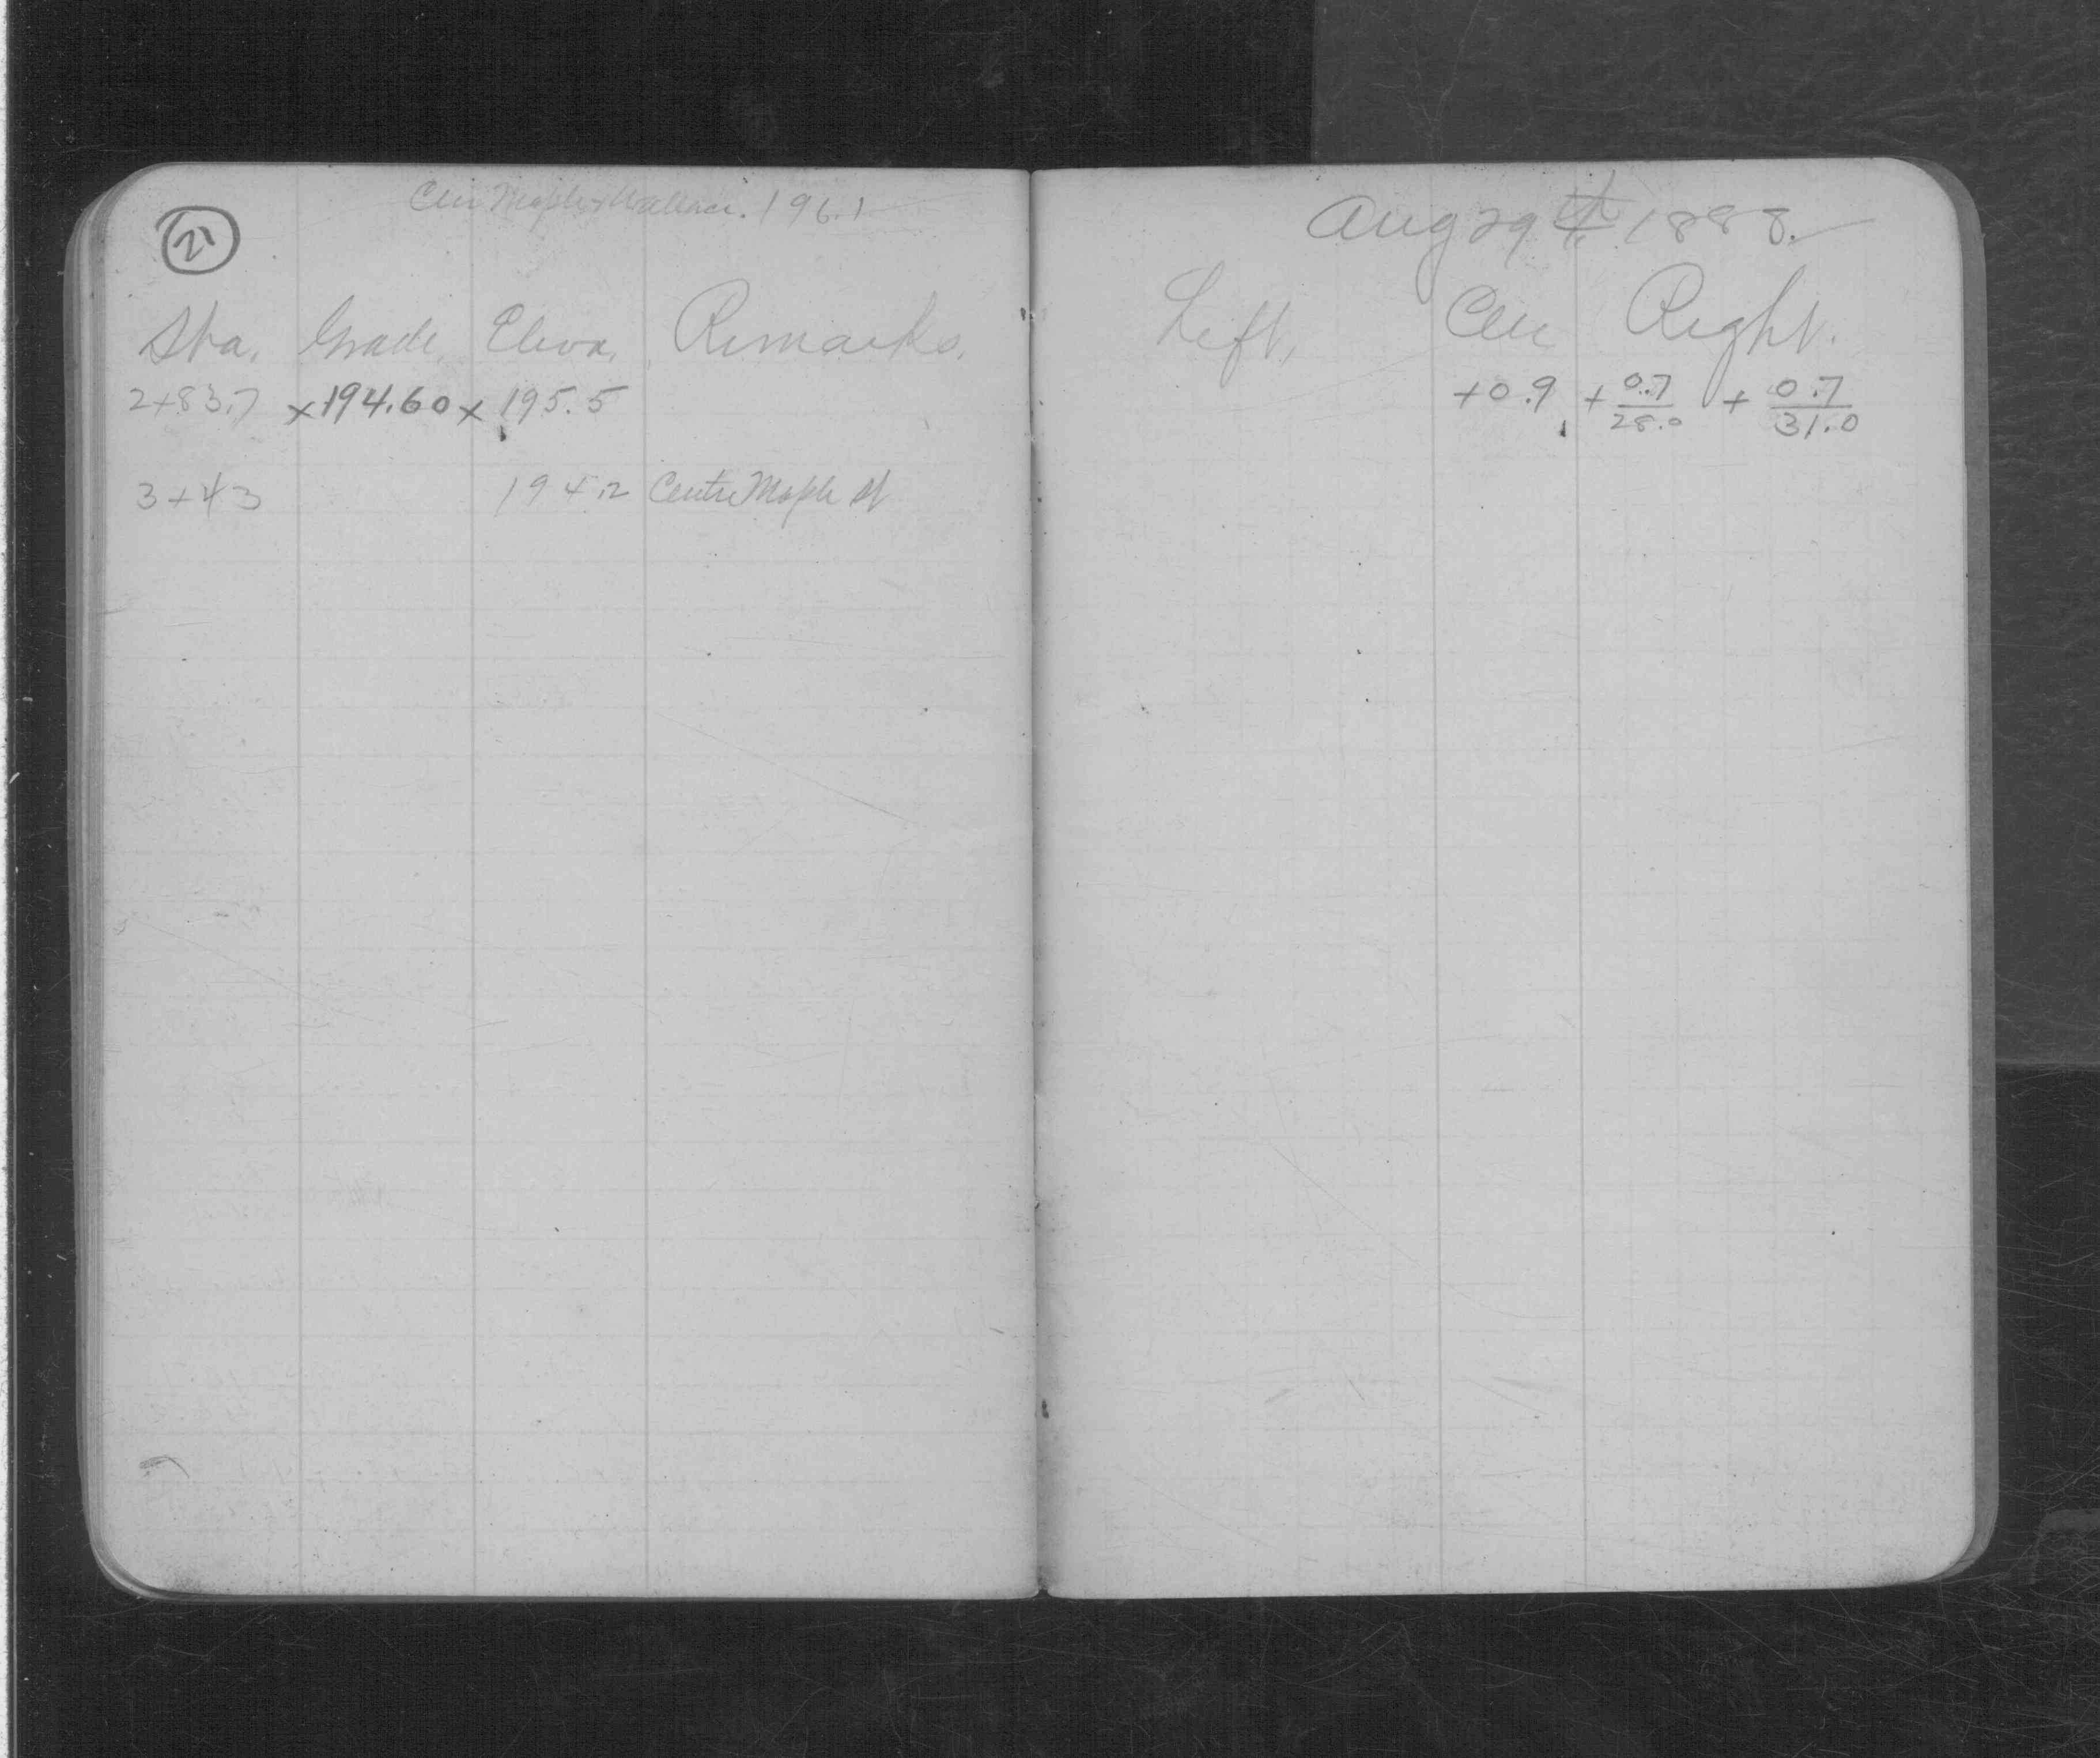 Cen Maple & Wallace. 196.1
21
Sta. Grade. Eleva. Remarks.
2+83.7 x194.60x 195.5
3+43 194.2 Centre Maple St
Aug 29th 1888.
Left. Cen Right.
+0.9 + 0.7/28.0 + 0.7/31.0